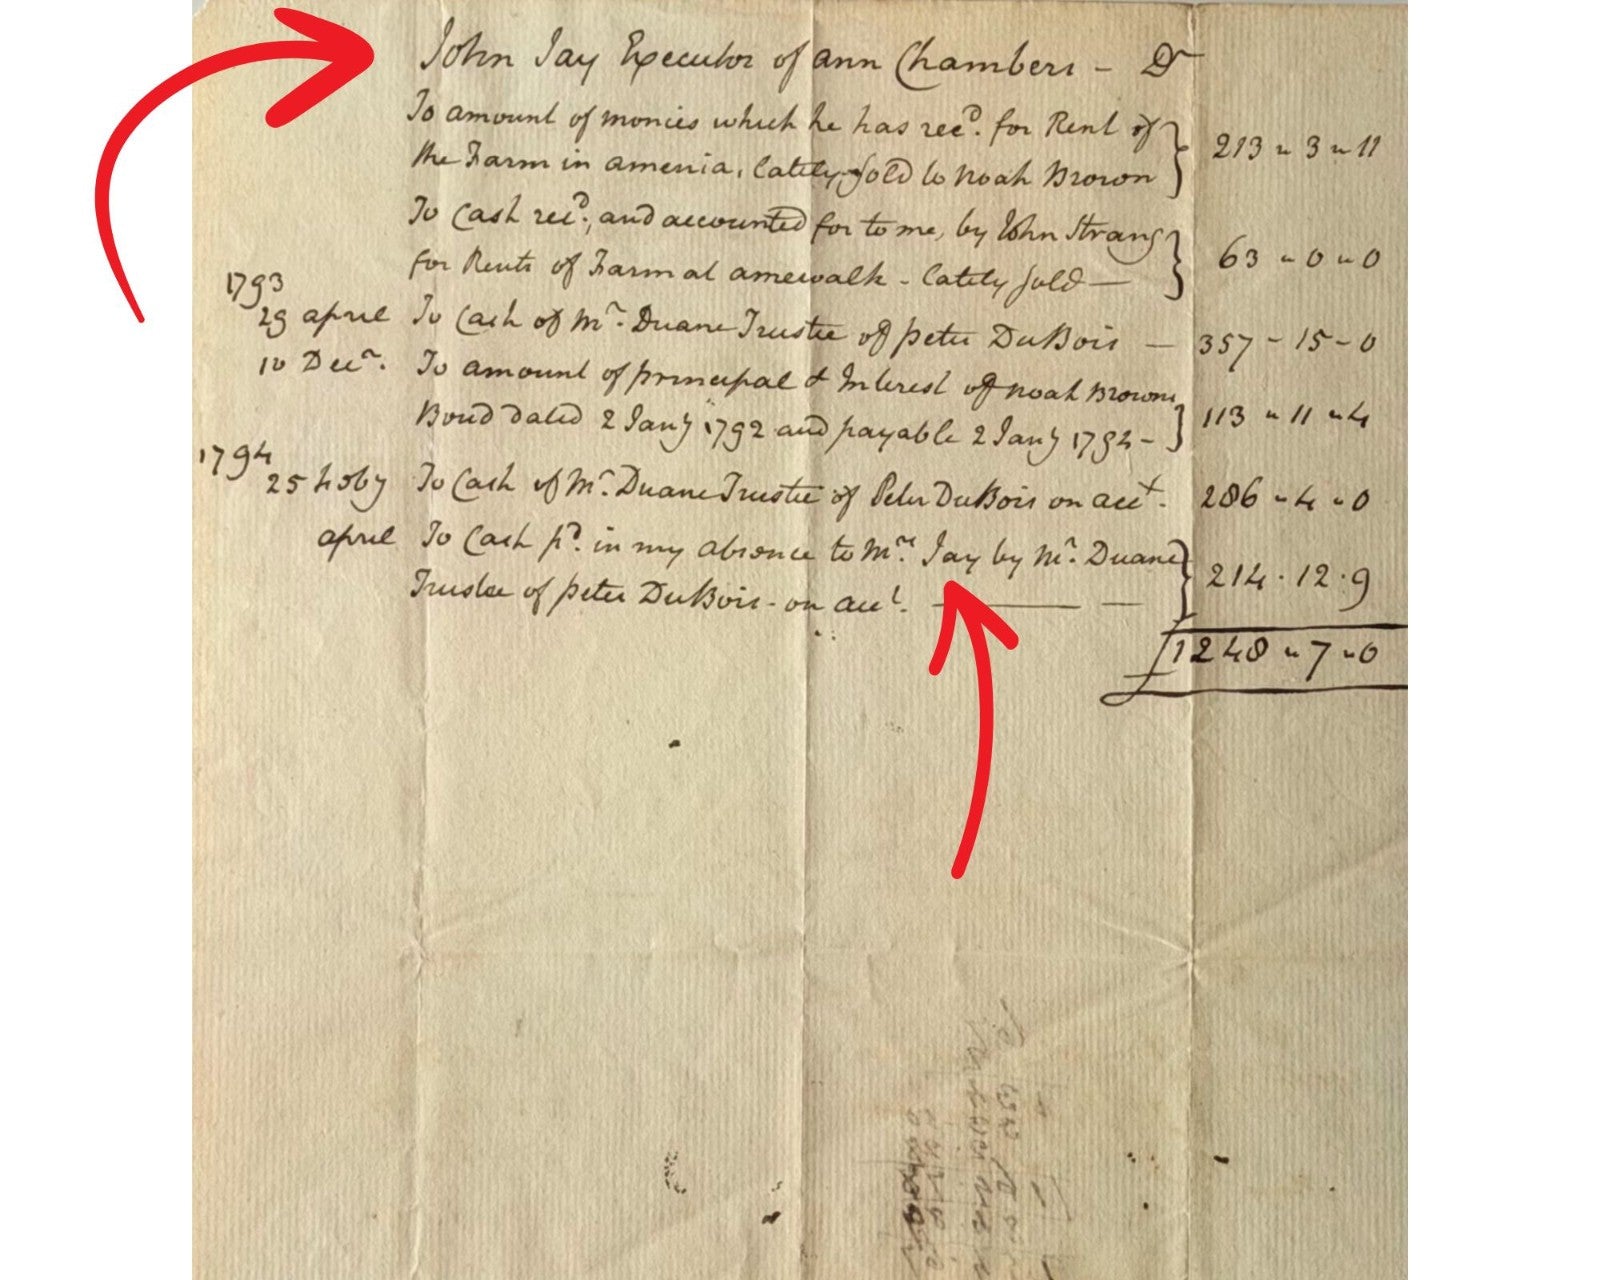 John Jay Executor of ann Chambers - Dr
To amount of monies which he has recd. for Rent of
the Farm in amenia, lately sold to Noah Brown } 213 " 3 " 11
To Cash recd., and accounted for to me, by John Strang
for Rents of Farm at amewalk - lately sold — } 63 " 0 " 0
1793
29 april To Cash of Mr. Duane Trustee of peter DuBois — 357 - 15 - 0
10 Decr. To amount of principal & Interest of Noah Browns
Bond dated 2 Jany 1792 and payable 2 Jany 1794 - } 113 " 11 " 4
1794
25 To Cash of Mr. Duane Trustee of Peter DuBois on acct. 286 " 4 " 0
april To Cash pd. in my absence to Mrs. Jay by Mr. Duane
Trustee of peter DuBois - on acct. — — } 214 . 12 . 9
£1248 " 7 " 0